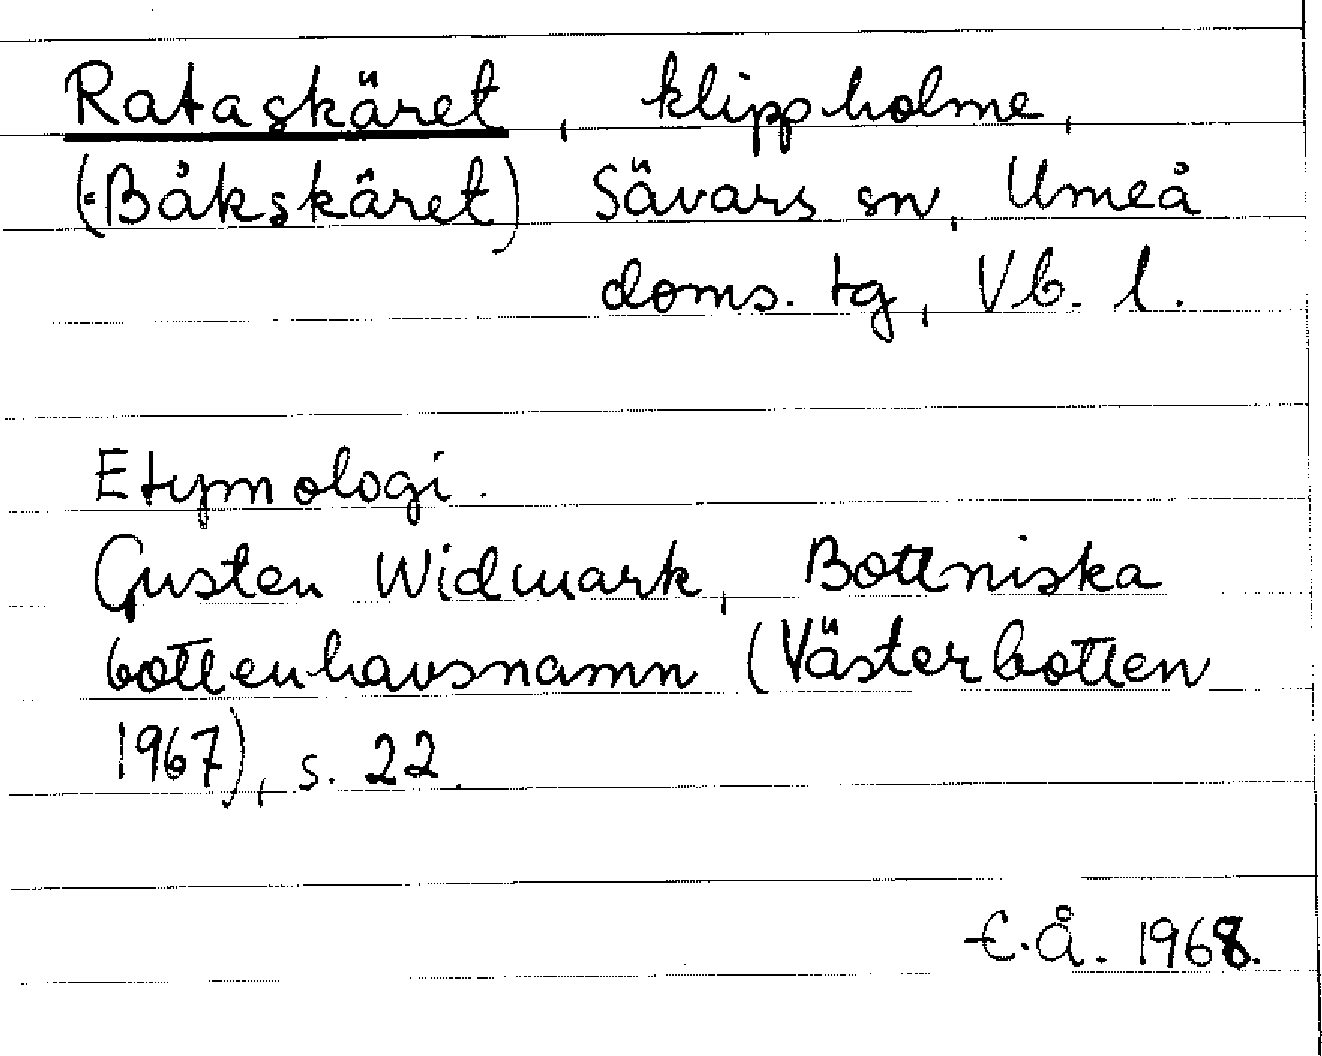 Rataskäret, klippholme,
(=Båkskäret) Sävars sn, Umeå
doms. tg, Vb. l.
Etymologi.
Gusten Widmark, Bottniska
bottenhavsnamn (Västerbotten
1967), s. 22.
E.Å. 1968.